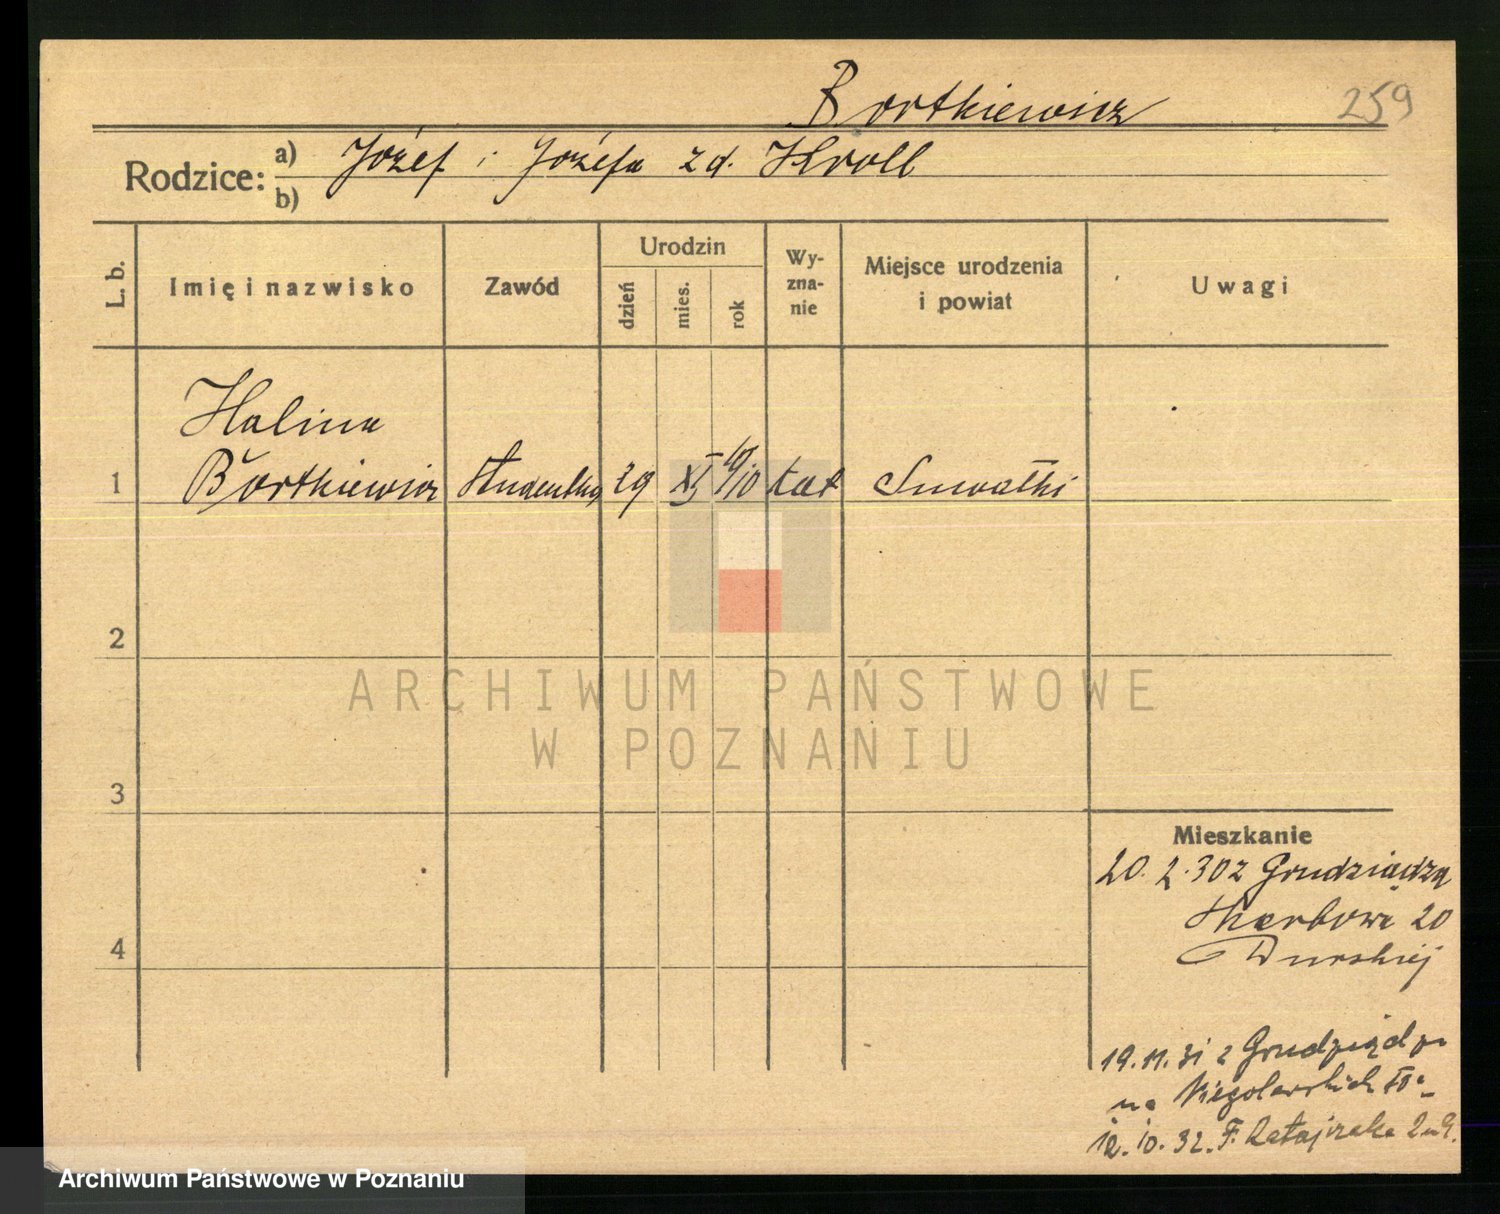 Bortkiewicz 259
Rodzice: a) Józef i Józefa z d. Kroll
b)
L. b.
Imię i nazwisko
Zawód
Urodzin
dzień
mies.
rok
Wy-
zna-
nie
Miejsce urodzenia
i powiat
Uwagi
Halina
1 Bortkiewicz studentka 29 XI 10 kat Suwałki
2
3
4
Mieszkanie
20. 2. 30 z Grudziądza
Skarbowa 20
19. 11. 31 z Grudziądza
na
12. 10. 32. F. Ratajczaka
ARCHIWUM PAŃSTWOWE
W POZNANIU
Archiwum Państwowe w Poznaniu